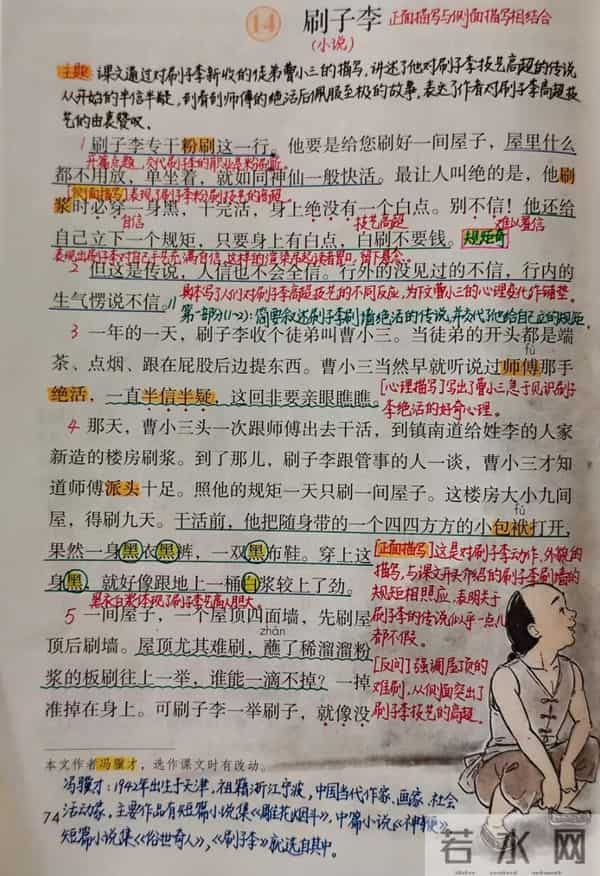 14 刷子李 正面描写与侧面描写相结合
(小说)
主题 课文通过对刷子李新收的徒弟曹小三的描写,讲述了他对刷子李技艺高超的传说
从开始的半信半疑,到看到师傅的绝活后佩服至极的故事,表达了作者对刷子李高超技
艺的由衷赞叹。
1 刷子李专干粉刷这一行。他要是给您刷好一间屋子,屋里什么
开篇点题,交代刷子李的职业是粉刷匠。
都不用放,单坐着,就如同神仙一般快活。最让人叫绝的是,他刷
[侧面描写]表现了刷子李粉刷技艺的高超。
浆时必穿一身黑,干完活,身上绝没有一个白点。别不信!他还给
自信 技艺高超 难以置信
自己立下一个规矩,只要身上有白点,白刷不要钱。 规矩奇
表现出刷子李对自己手艺充满自信,这样的渲染吊起读者胃口,留下悬念。
2 但这是传说,人信也不会全信。行外的没见过的不信,行内的
生气愣说不信。//
具体写了人们对刷子李高超技艺的不同反应,为下文曹小三的心理变化作铺垫。
第一部分(1~2):简要叙述刷子李刷墙绝活的传说,并交代了他给自己立的规矩
3 一年的一天,刷子李收个徒弟叫曹小三。当徒弟的开头都是端
fu
茶、点烟、跟在屁股后边提东西。曹小三当然早就听说过师傅那手
绝活,一直半信半疑,这回非要亲眼瞧瞧。
[心理描写]写出了曹小三急于见识刷子
李绝活的好奇心理。
4 那天,曹小三头一次跟师傅出去干活,到镇南道给姓李的人家
新造的楼房刷浆。到了那儿,刷子李跟管事的人一谈,曹小三才知
道师傅派头十足。照他的规矩一天只刷一间屋子。这楼房大小九间
fú
屋,得刷九天。干活前,他把随身带的一个四四方方的小包袱打开,
果然一身黑衣黑裤,一双黑布鞋。穿上这
身黑,就好像跟地上一桶白浆较上了劲。
黑衣白浆体现了刷子李艺高人胆大。
[正面描写]这是对刷子李动作、外貌的
描写,与课文开头介绍的刷子李刷墙的
规矩相照应,表明关于
刷子李的传说似乎一点儿
都不假。
5 一间屋子,一个屋顶四面墙,先刷屋
zhàn
顶后刷墙。屋顶尤其难刷,蘸了稀溜溜粉
浆的板刷往上一举,谁能一滴不掉?一掉
准掉在身上。可刷子李一举刷子,就像没
[反问]强调屋顶的
难刷,从侧面突出了
刷子李技艺的高超。
本文作者冯骥才,选作课文时有改动。
冯骥才:1942年出生于天津,祖籍浙江宁波,中国当代作家、画家、社会
活动家,主要作品有短篇小说集《雕花烟斗》,中篇小说《神鞭》,
74
短篇小说集《俗世奇人》,《刷子李》就选自其中。
若水网